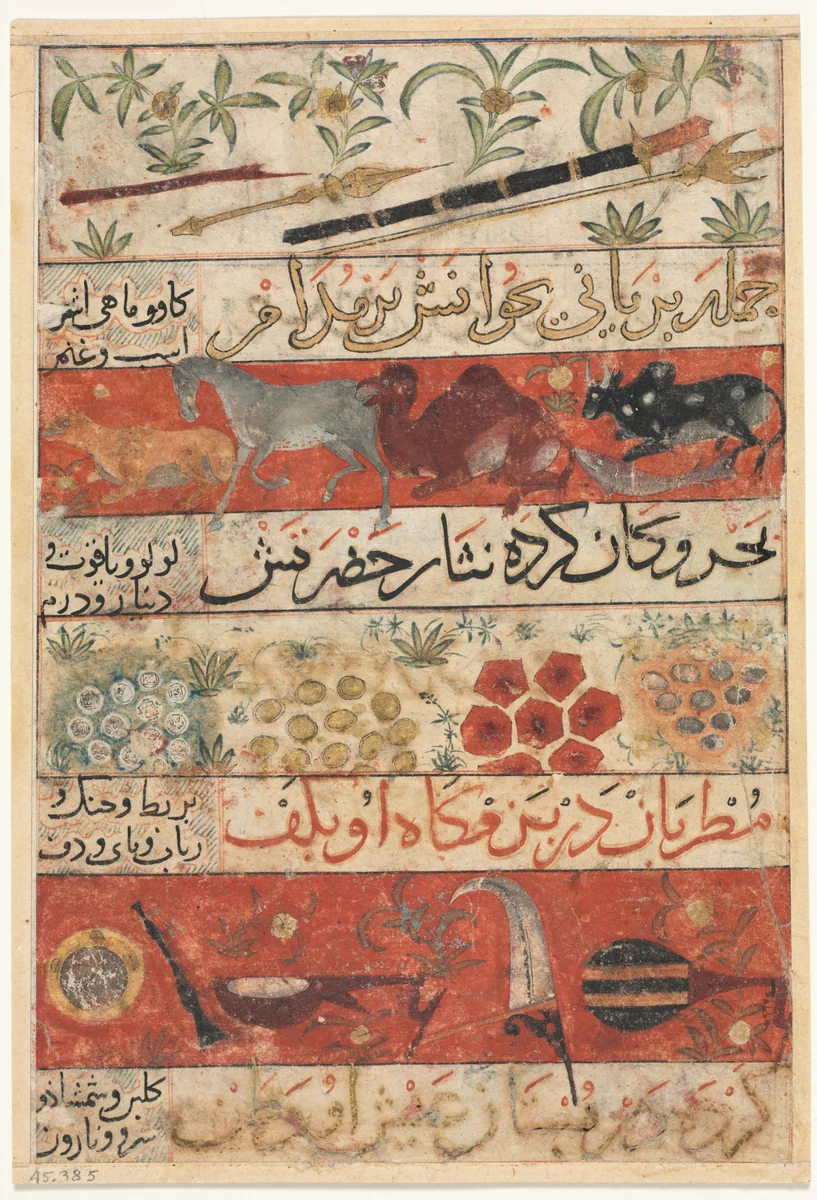 جمله بریانی بخوانش بر مدام
کاو و ماهی اشتر
اسب و غنم
بحر و کان کرده نثار حضرتش
لولو و یاقوت و
دینار و درم
مطربان در بزمگاه او بکف
بربط و چنک و
رباب و نای و دف
کرده در بستان عیش او وطن
کلبن و شمشاد و
سرو و نارون
45.385